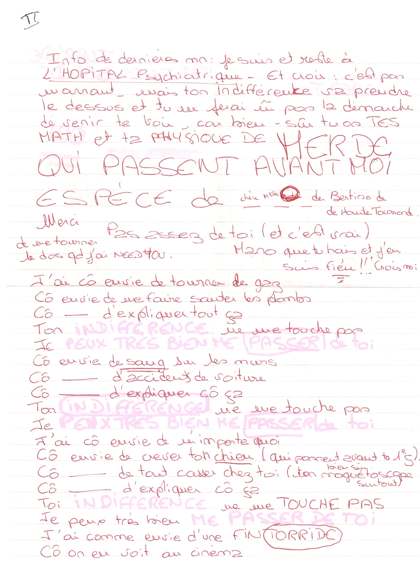 II
Info de dernières mn : je suis et reste à
L'HOPITAL Psychiatrique - Et crois : c'est pas
marrant - mais ton indifférence va prendre
le dessus et tu ne feras pas la démarche
de venir te voir - car bien - sûr tu as TES
MATH et ta PHYSIQUE DE MERDE
QUI PASSENT AVANT MOI
ESPÈCE de de
de Haute
Merci Pas assez de toi (et c'est vrai)
de me tourner que tu hais et j'en
le dos qd j'ai NEED YOU. suis Fieu!! Crois moi
J'ai cô envie de tourner de gaz
Cô envie de me faire sauter les plombs
Cô — d'expliquer tout ça
Ton INDIFFÉRENCE ne me touche pas
Je PEUX TRES BIEN ME PASSER de toi
Cô envie de sang sur les murs
Cô — d'accident de voiture
Cô — d'expliquer cô ça
Ton INDIFFERENCE ne me touche pas
Je PEUX TRES BIEN ME PASSER de toi
J'ai cô envie de n'importe quoi
Cô envie de crever ton chien (qui passent avant to
Cô — de tout casser chez toi (ton magnétoscope
surtout)
Cô — d'expliquer cô ça
Toi INDIFFERENCE ne me TOUCHE PAS
Je peux très bien ME PASSER DE TOI
J'ai comme envie d'une FIN TORRIDE
Cô on en voit au cinéma